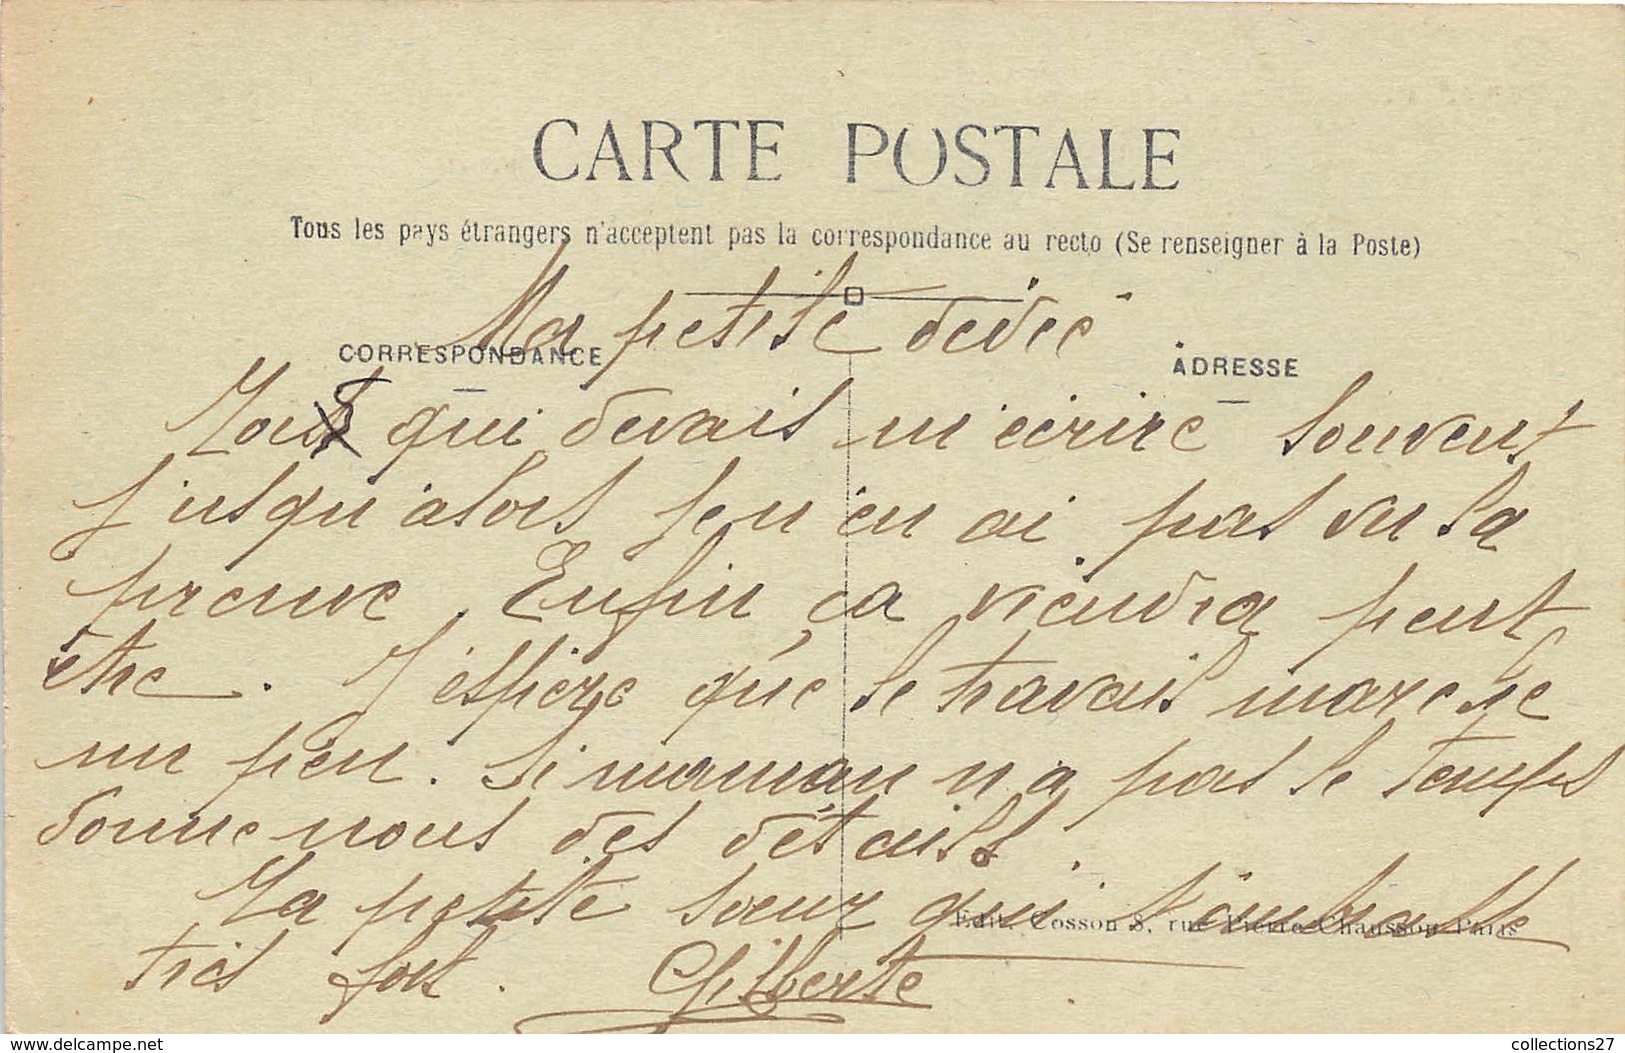 CARTE POSTALE
Tous les pays étrangers n'acceptent pas la correspondance au recto (Se renseigner à la Poste)
Ma petite dédée
CORRESPONDANCE
ADRESSE
qui devais m'écrire souvent
jusqu'alors je n'en ai pas vu la
preuve. Enfin ça viendra peut
être. J'espère que le travail marche
un peu. Si maman n'a pas le temps
donne nous des détails.
Ta petite soeur qui t'embrasse
Edit. Cosson 8, rue Pierre-Chausson Paris
très fort. Gilberte
delcampe.net
collections27